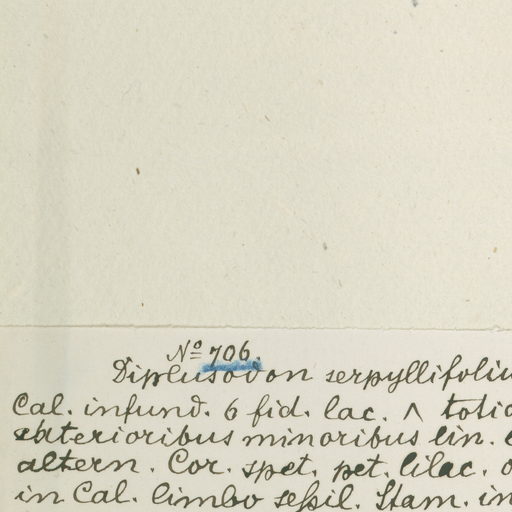 Nº 706.
Diplusodon serpyllifoliu
Cal. infund. 6 fid. lac. ^ totid
exterioribus minoribus lin.
altern. Cor. spet. pet. lilac.
in Cal. limbo seſsil. Stam. in